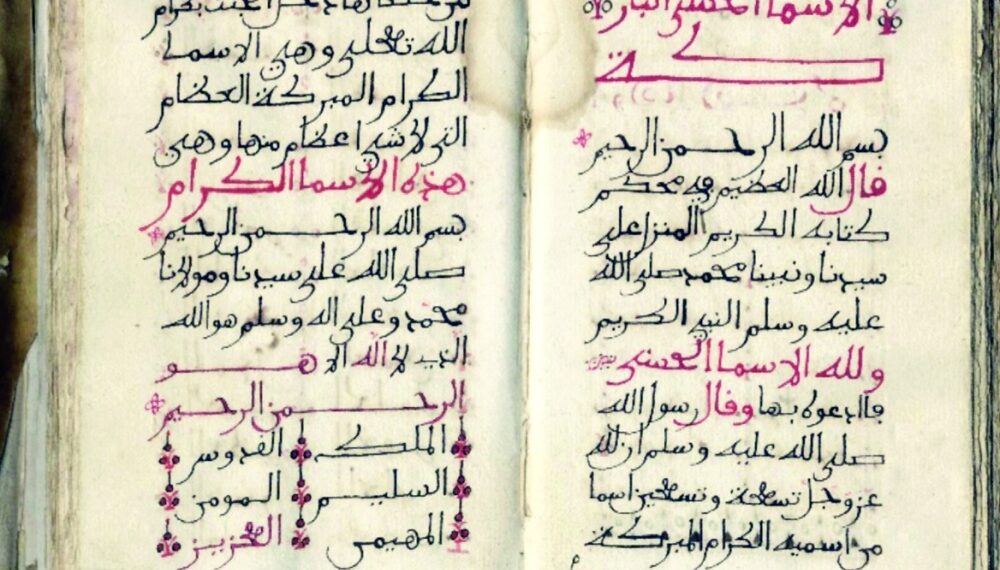 الاسما الحسنى المبار
كة
بسم الله الرحمن الرحيم
قال الله العظيم في محكم
كتابه الكريم المنزل على
سيدنا ونبينا محمد صلى الله
عليه وسلم النبي الكريم
ولله الاسما الحسنى
فادعوه بها وقال رسول الله
صلى الله عليه وسلم ان لله
عز وجل تسعة وتسعين اسما
من اسميه الكرام المبركة
من حفظها دخل الجنة بكرام
الله تعلى وهي الاسما
الكرام المبركة العظام
التي لا شي اعظام منها وهي
هذه الاسما الكرام
بسم الله الرحمن الرحيم
صلى الله على سيدنا ومولانا
محمد وعلى اله وسلم هو الله
الذي لا اله الا هو
الرحمن الرحيم
الملك القدوس
السليم المومن
المهيمن العزيز